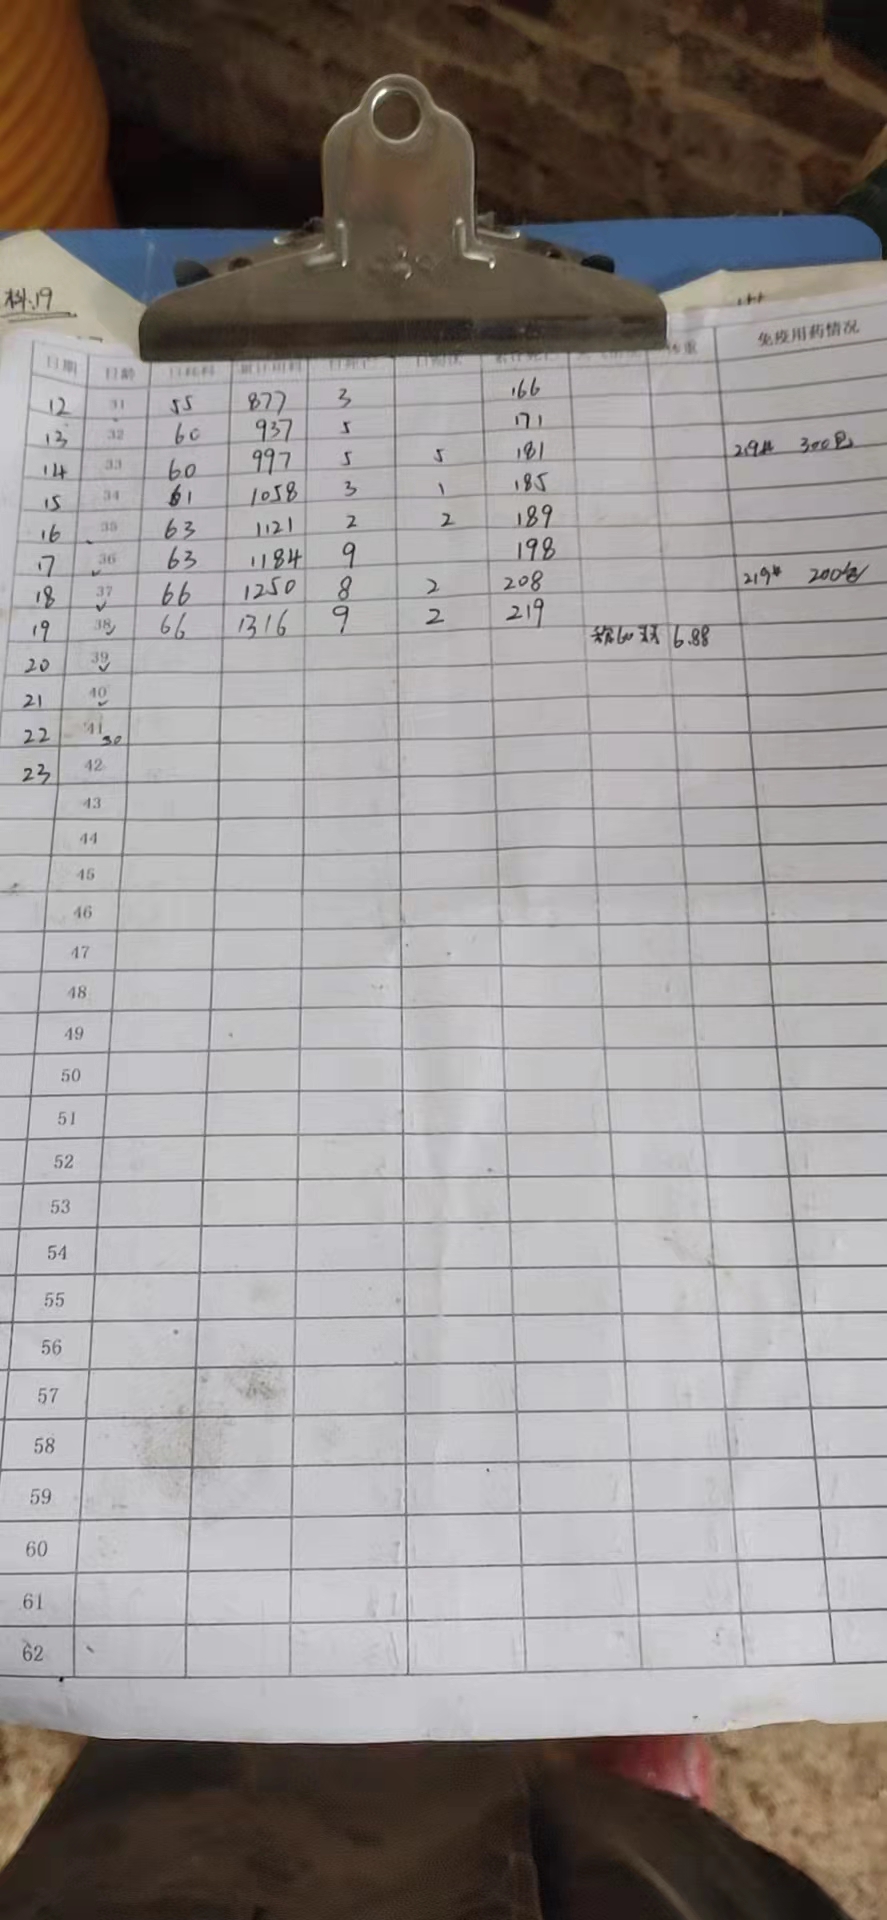 料.19
日期 日龄 日耗料 累计用料 日死亡 体重 免疫用药情况
12 31 55 877 3 166
13 32 60 937 5 171
14 33 60 997 5 5 181 219# 300包
15 34 61 1058 3 1 185
16 35 63 1121 2 2 189
17 36 63 1184 9 198
18 37 66 1250 8 2 208 219# 200包
19 38 66 1316 9 2 219
20 39 称60 6.88
21 40
22 41 30
23 42
43
44
45
46
47
48
49
50
51
52
53
54
55
56
57
58
59
60
61
62